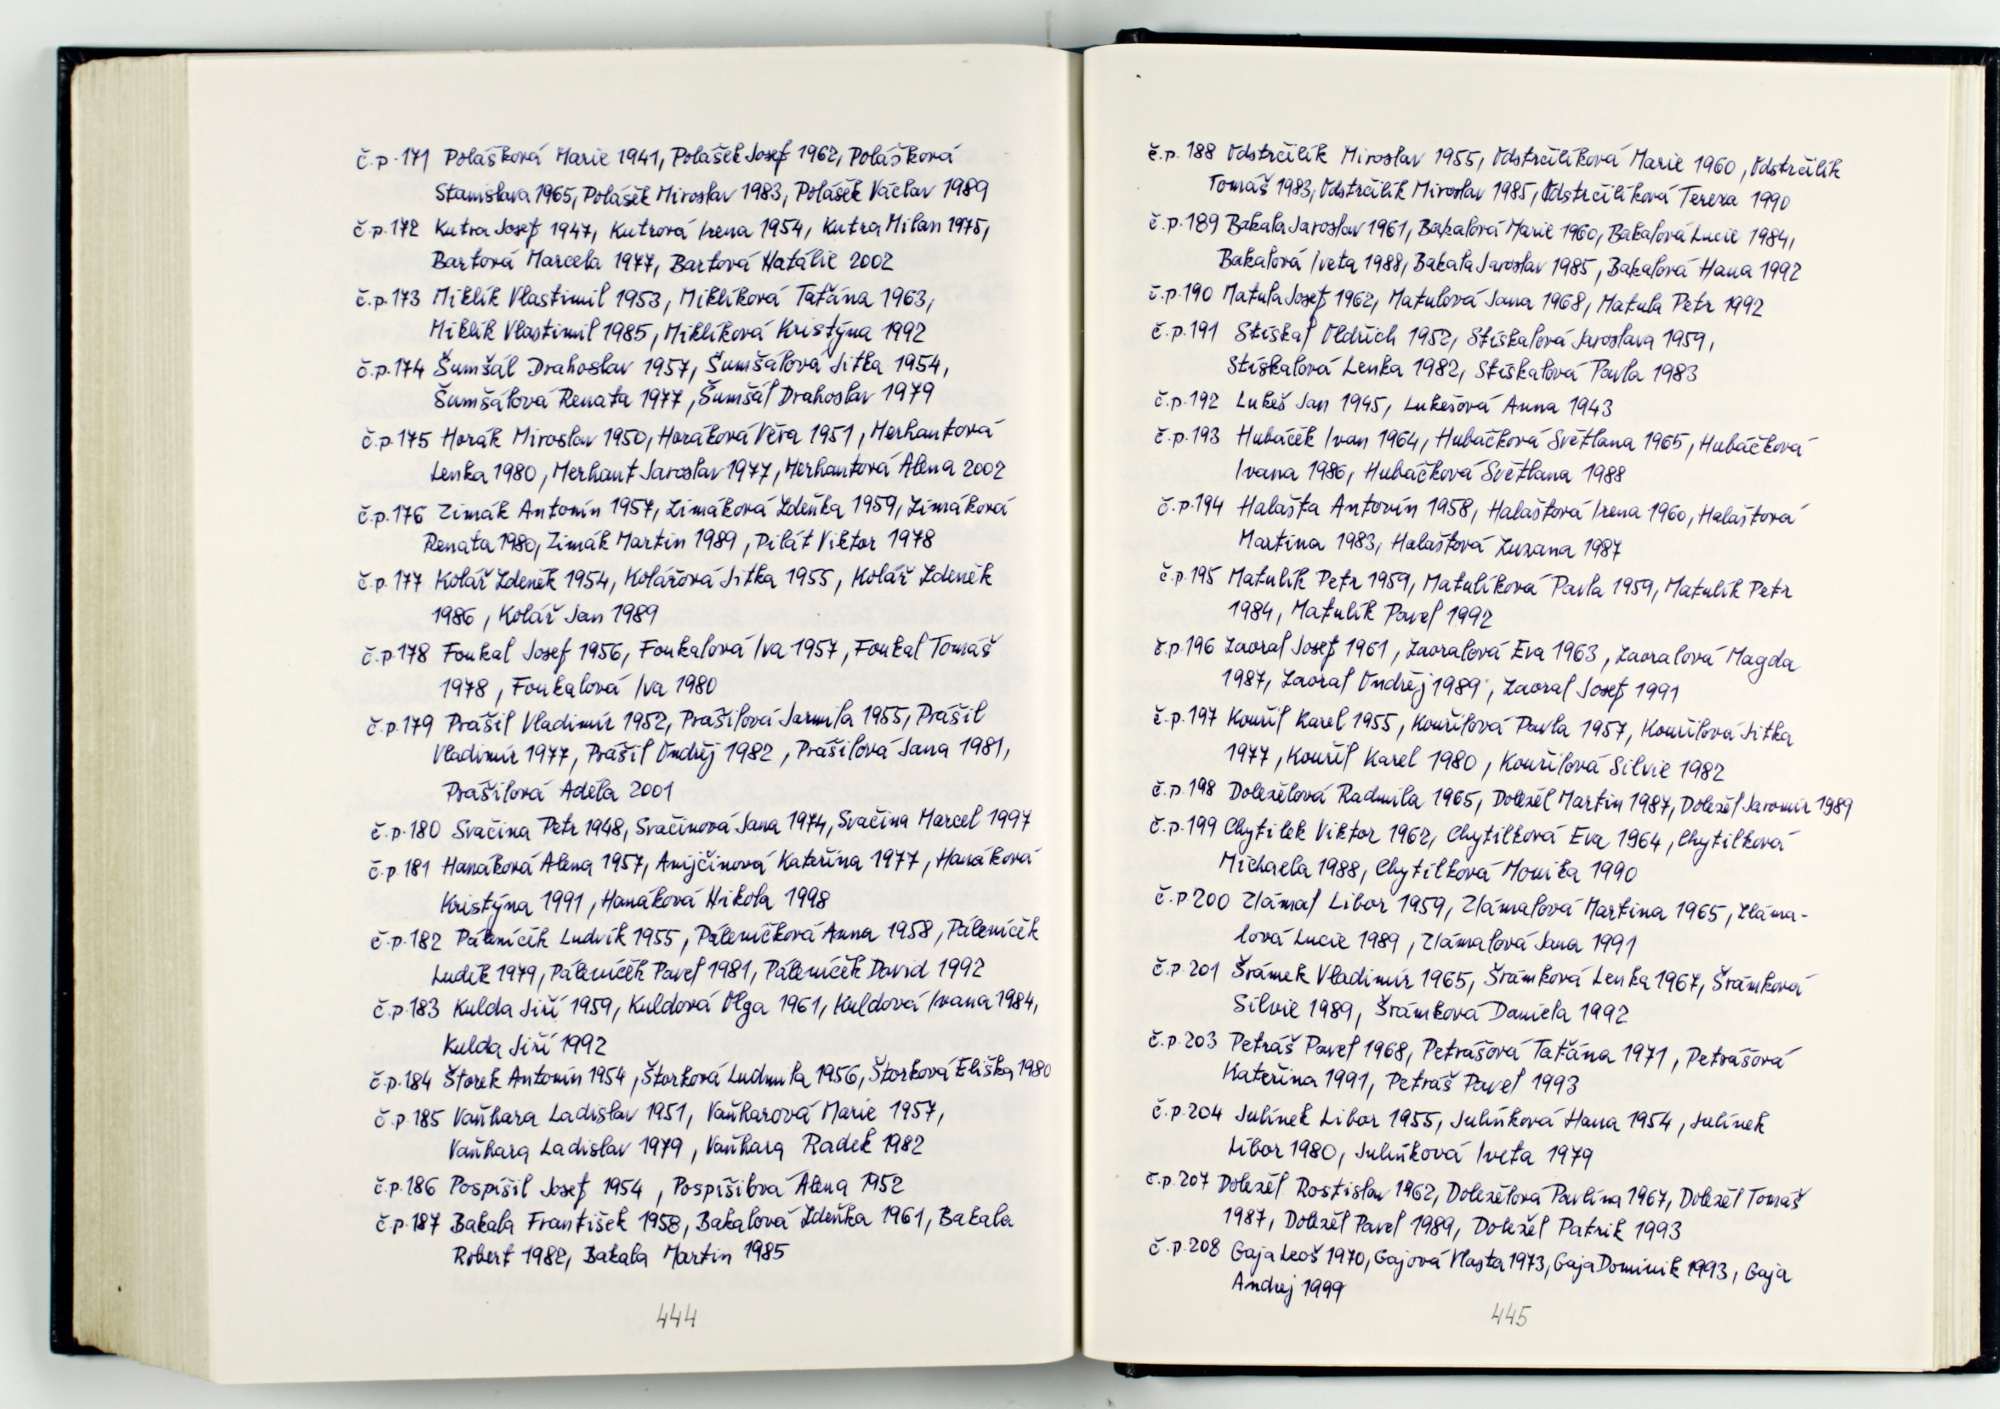 č.p.171 Polášková Marie 1941, Polášek Josef 1962, Polášková
Stanislava 1965, Polášek Miroslav 1983, Polášek Václav 1989
č.p.172 Kutra Josef 1947, Kutrová Irena 1954, Kutra Milan 1975,
Bartová Marcela 1977, Bartová Natálie 2002
č.p.173 Miklík Vlastimil 1953, Miklíková Taťána 1963,
Miklík Vlastimil 1985, Miklíková Kristýna 1992
č.p.174 Šumšál Drahoslav 1957, Šumšálová Jitka 1954,
Šumšálová Renata 1977, Šumšál Drahoslav 1979
č.p.175 Horák Miroslav 1950, Horáková Věra 1951, Merhautová
Lenka 1980, Merhaut Jaroslav 1977, Merhautová Alena 2002
č.p.176 Zimák Antonín 1957, Zimáková Zdeňka 1959, Zimáková
Renata 1980, Zimák Martin 1989, Pilát Viktor 1978
č.p.177 Kolář Zdeněk 1954, Kolářová Jitka 1955, Kolář Zdeněk
1986, Kolář Jan 1989
č.p.178 Foukal Josef 1956, Foukalová Iva 1957, Foukal Tomáš
1978, Foukalová Iva 1980
č.p.179 Prášil Vladimír 1952, Prášilová Jarmila 1955, Prášil
Vladimír 1977, Prášil Ondřej 1982, Prášilová Jana 1981,
Prášilová Adéla 2001
č.p.180 Svačina Petr 1948, Svačinová Jana 1974, Svačina Marcel 1997
č.p.181 Hanáková Alena 1957, Anijčinová Kateřina 1977, Hanáková
Kristýna 1991, Hanáková Nikola 1998
č.p.182 Páleníček Ludvík 1955, Páleníčková Anna 1958, Páleníček
Luděk 1979, Páleníček Pavel 1981, Páleníček David 1992
č.p.183 Kulda Jiří 1959, Kuldová Olga 1961, Kuldová Ivana 1984,
Kulda Jiří 1992
č.p.184 Štorek Antonín 1954, Štorková Ludmila 1956, Štorková Eliška 1980
č.p.185 Vaňhara Ladislav 1951, Vaňharová Marie 1957,
Vaňhara Ladislav 1979, Vaňhara Radek 1982
č.p.186 Pospíšil Josef 1954, Pospíšilová Alena 1952
č.p.187 Bakala František 1958, Bakalová Zdeňka 1961, Bakala
Robert 1982, Bakala Martin 1985
444
č.p.188 Odstrčilík Miroslav 1955, Odstrčilíková Marie 1960, Odstrčilík
Tomáš 1983, Odstrčilík Miroslav 1985, Odstrčilíková Tereza 1990
č.p.189 Bakala Jaroslav 1961, Bakalová Marie 1960, Bakalová Lucie 1984,
Bakalová Iveta 1988, Bakala Jaroslav 1985, Bakalová Hana 1992
č.p.190 Matula Josef 1962, Matulová Jana 1968, Matula Petr 1992
č.p.191 Stískal Oldřich 1952, Stískalová Jaroslava 1959,
Stískalová Lenka 1982, Stískalová Pavla 1983
č.p.192 Lukeš Jan 1945, Lukešová Anna 1943
č.p.193 Hubáček Ivan 1964, Hubáčková Světlana 1965, Hubáčková
Ivana 1986, Hubáčková Světlana 1988
č.p.194 Halašta Antonín 1958, Halaštová Irena 1960, Halaštová
Martina 1983, Halaštová Zuzana 1987
č.p.195 Matulík Petr 1959, Matulíková Pavla 1959, Matulík Petr
1984, Matulík Pavel 1992
č.p.196 Zaoral Josef 1961, Zaoralová Eva 1963, Zaoralová Magda
1987, Zaoral Ondřej 1989, Zaoral Josef 1991
č.p.197 Kouřil Karel 1955, Kouřilová Pavla 1957, Kouřilová Jitka
1977, Kouřil Karel 1980, Kouřilová Silvie 1982
č.p.198 Doležélová Radmila 1965, Doležél Martin 1987, Doležel Jaromír 1989
č.p.199 Chytilek Viktor 1962, Chytilková Eva 1964, Chytilková
Michaela 1988, Chytilková Monika 1990
č.p.200 Zlámal Libor 1959, Zlámalová Martina 1965, Zláma-
lová Lucie 1989, Zlámalová Jana 1991
č.p.201 Šrámek Vladimír 1965, Šrámková Lenka 1967, Šrámková
Silvie 1989, Šrámková Daniela 1992
č.p.203 Petráš Pavel 1968, Petrášová Taťána 1971, Petrášová
Kateřina 1991, Petráš Pavel 1993
č.p.204 Julínek Libor 1955, Julínková Hana 1954, Julínek
Libor 1980, Julínková Iveta 1979
č.p.207 Doležél Rostislav 1962, Doležélová Pavlína 1967, Doležel Tomáš
1987, Doležel Pavel 1989, Doležel Patrik 1993
č.p.208 Gaja Leoš 1970, Gajová Vlasta 1973, Gaja Dominik 1993, Gaja
Andrej 1999
445